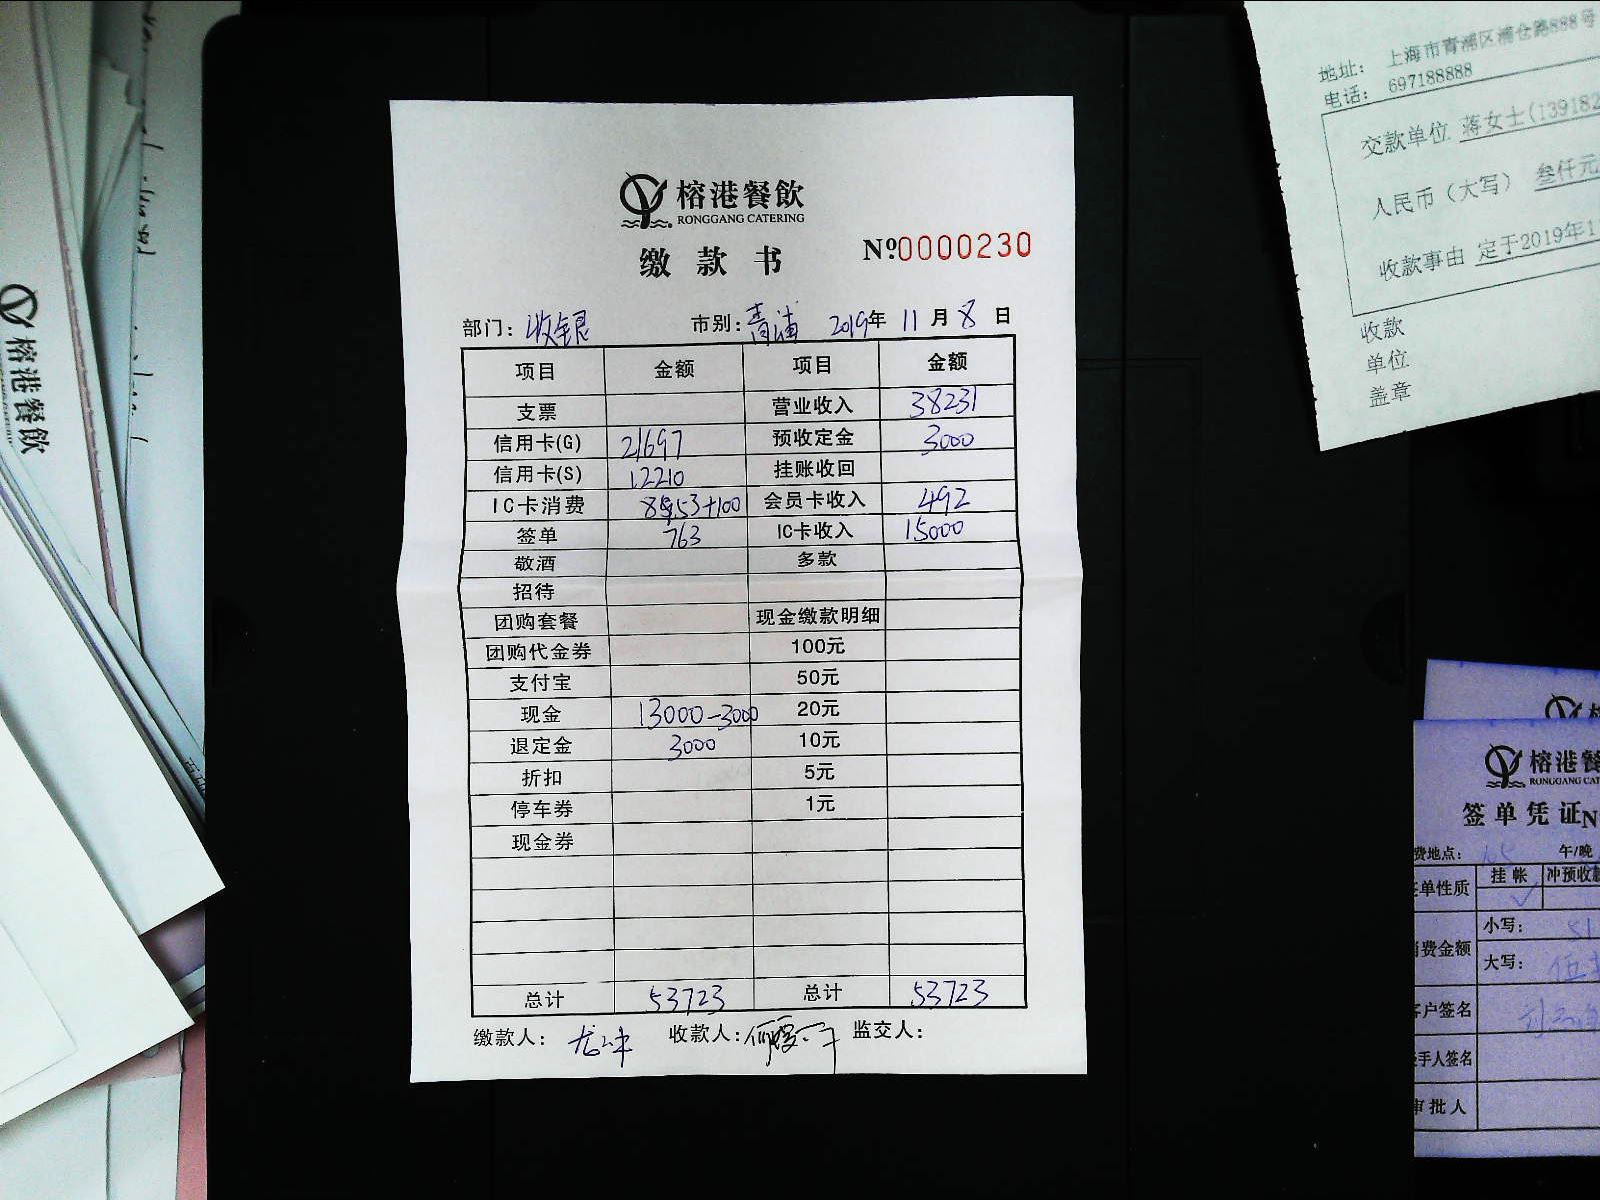 榕港餐飲
RONGGANG CATERING
缴款书 №0000230
部门：收银 市别：青浦 2019年 11月 8日
项目 金额 项目 金额
支票 营业收入 38231
信用卡(G) 21697 预收定金 3000
信用卡(S) 12210 挂账收回
IC卡消费 会员卡收入 492
签单 763 IC卡收入 15000
敬酒 多款
招待
团购套餐 现金缴款明细
团购代金券 100元
支付宝 50元
现金 13000-3000 20元
退定金 3000 10元
折扣 5元
停车券 1元
现金券
总计 53723 总计 53723
缴款人： 收款人： 监交人：
地址： 上海市青浦区浦仓路888号
电话： 697188888
交款单位 蒋女士(139182
人民币（大写） 叁仟元
收款事由 定于2019年1
收款
单位
盖章
榕港餐飲
榕港餐
RONGGANG CAT
签单凭证N
费地点： 午/晚
单性质 挂帐 冲预收款
费金额 小写： 51
大写：
客户签名
手人签名
审批人